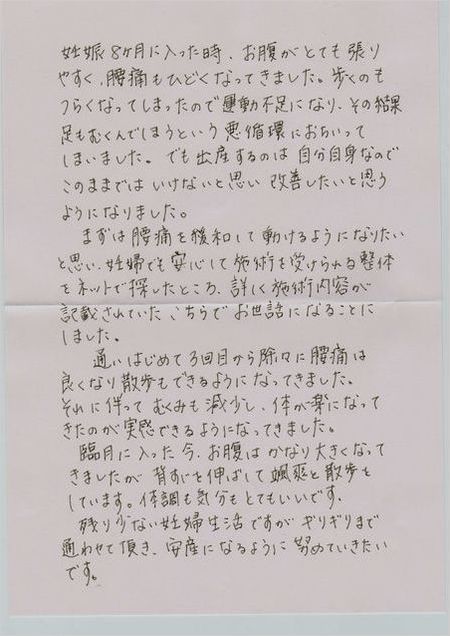 妊娠8ヶ月に入った時、お腹がとても張り
やすく、腰痛もひどくなってきました。歩くのも
つらくなってしまったので運動不足になり、その結果
足もむくんでしまうという悪循環におちいって
しまいました。でも出産するのは自分自身なので
このままではいけないと思い改善したいと思う
ようになりました。
まずは腰痛を緩和して動けるようになりたい
と思い、妊婦でも安心して施術を受けられる整体
をネットで探したところ、詳しく施術内容が
記載されていたこちらでお世話になることに
しました。
通いはじめて3回目から除々に腰痛は
良くなり散歩もできるようになってきました。
それに伴ってむくみも減少し、体が楽になって
きたのが実感できるようになってきました。
臨月に入った今、お腹はかなり大きくなって
きましたが背すじを伸ばして颯爽と散歩を
しています。体調も気分もとてもいいです。
残り少ない妊婦生活ですがギリギリまで
通わせて頂き、安産になるように努めていきたい
です。